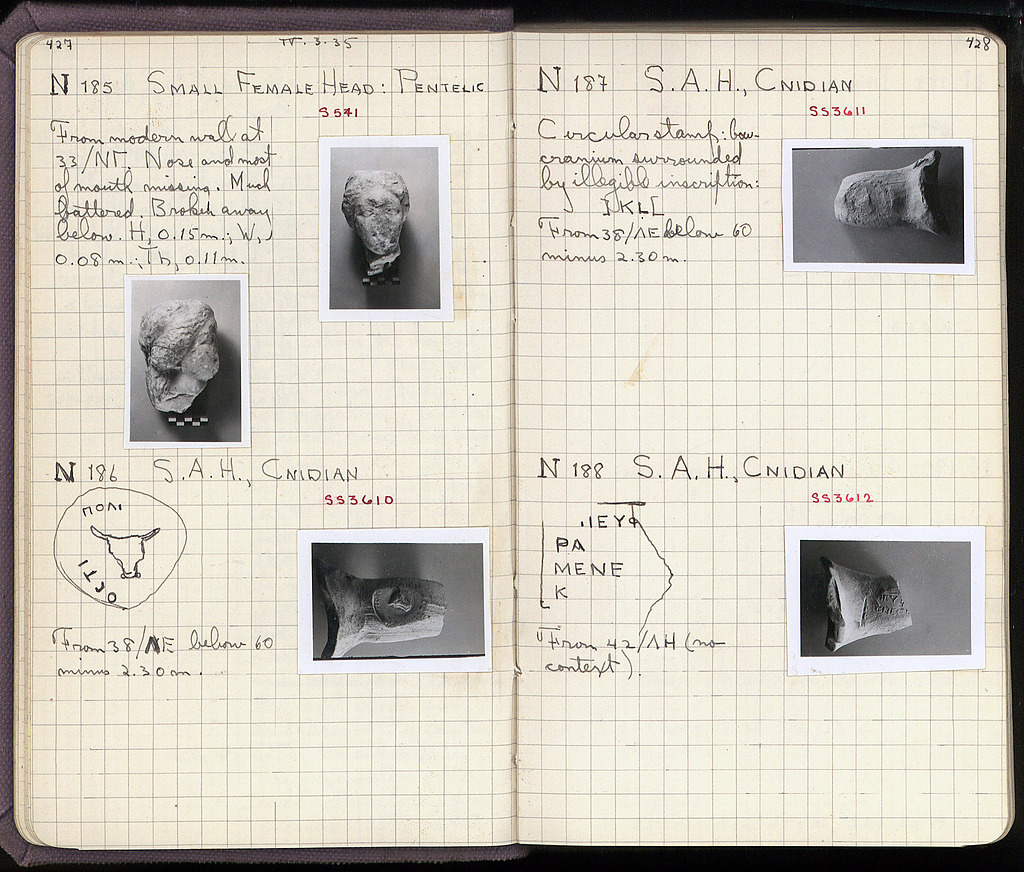 427
IV.3.35
N 185 SMALL FEMALE HEAD: PENTELIC
S 541
From modern wall at
33/ΝΓ. Nose and most
of mouth missing. Much
battered. Broken away
below. H, 0.15 m.; W,
0.08 m.; Th, 0.11 m.
N 186 S.A.H., CNIDIAN
SS3610
ΠΟΛΙ
From 38/ΛΕ below 60
minus 2.30 m.
428
N 187 S.A.H., CNIDIAN
SS3611
Circular stamp: bou-
cranium surrounded
by illegible inscription:
]KL[
From 38/ΛΕ below 60
minus 2.30 m.
N 188 S.A.H., CNIDIAN
SS3612
ΡΑ
ΜΕΝΕ
Κ
From 42/ΛΗ (no
context).